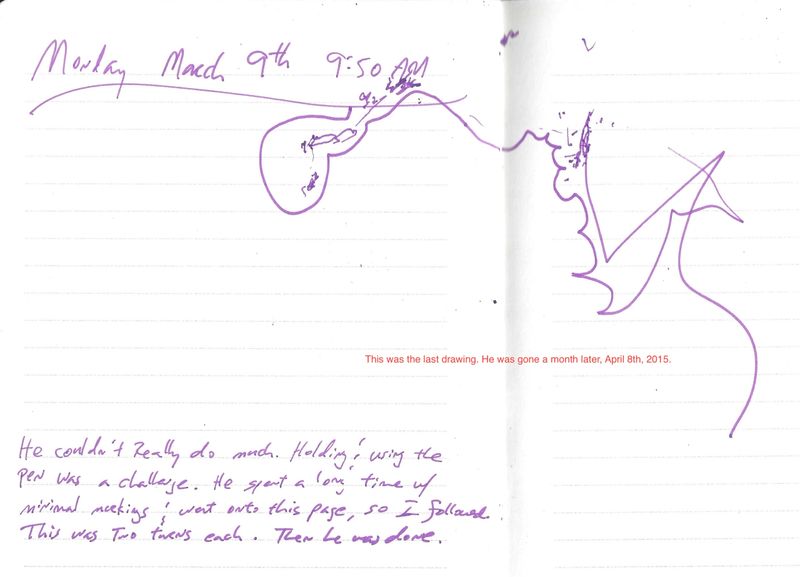 Monday March 9th 9:50 AM
This was the last drawing. He was gone a month later, April 8th, 2015.
He couldn't Really do much. Holding & using the
pen was a challenge. He spent a long time w/
minimal markings & went onto this page, so I followed.
This was Two turns each. Then he was done.